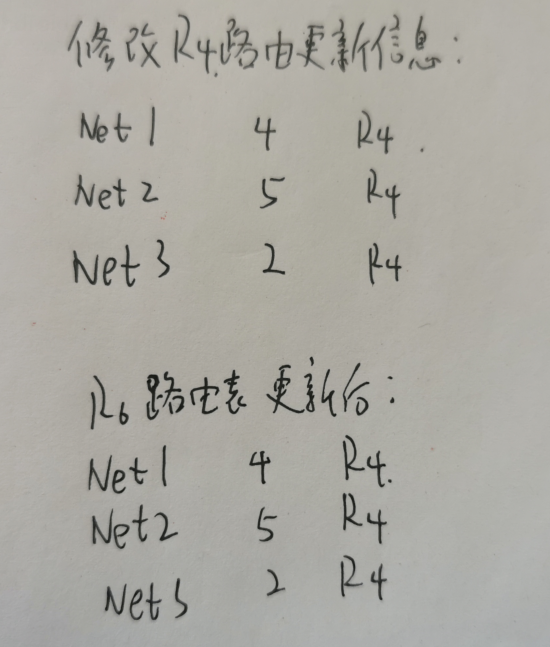 修改R4路由更新信息:
Net1 4 R4.
Net2 5 R4
Net3 2 R4
R6路由表更新后:
Net1 4 R4.
Net2 5 R4
Net3 2 R4